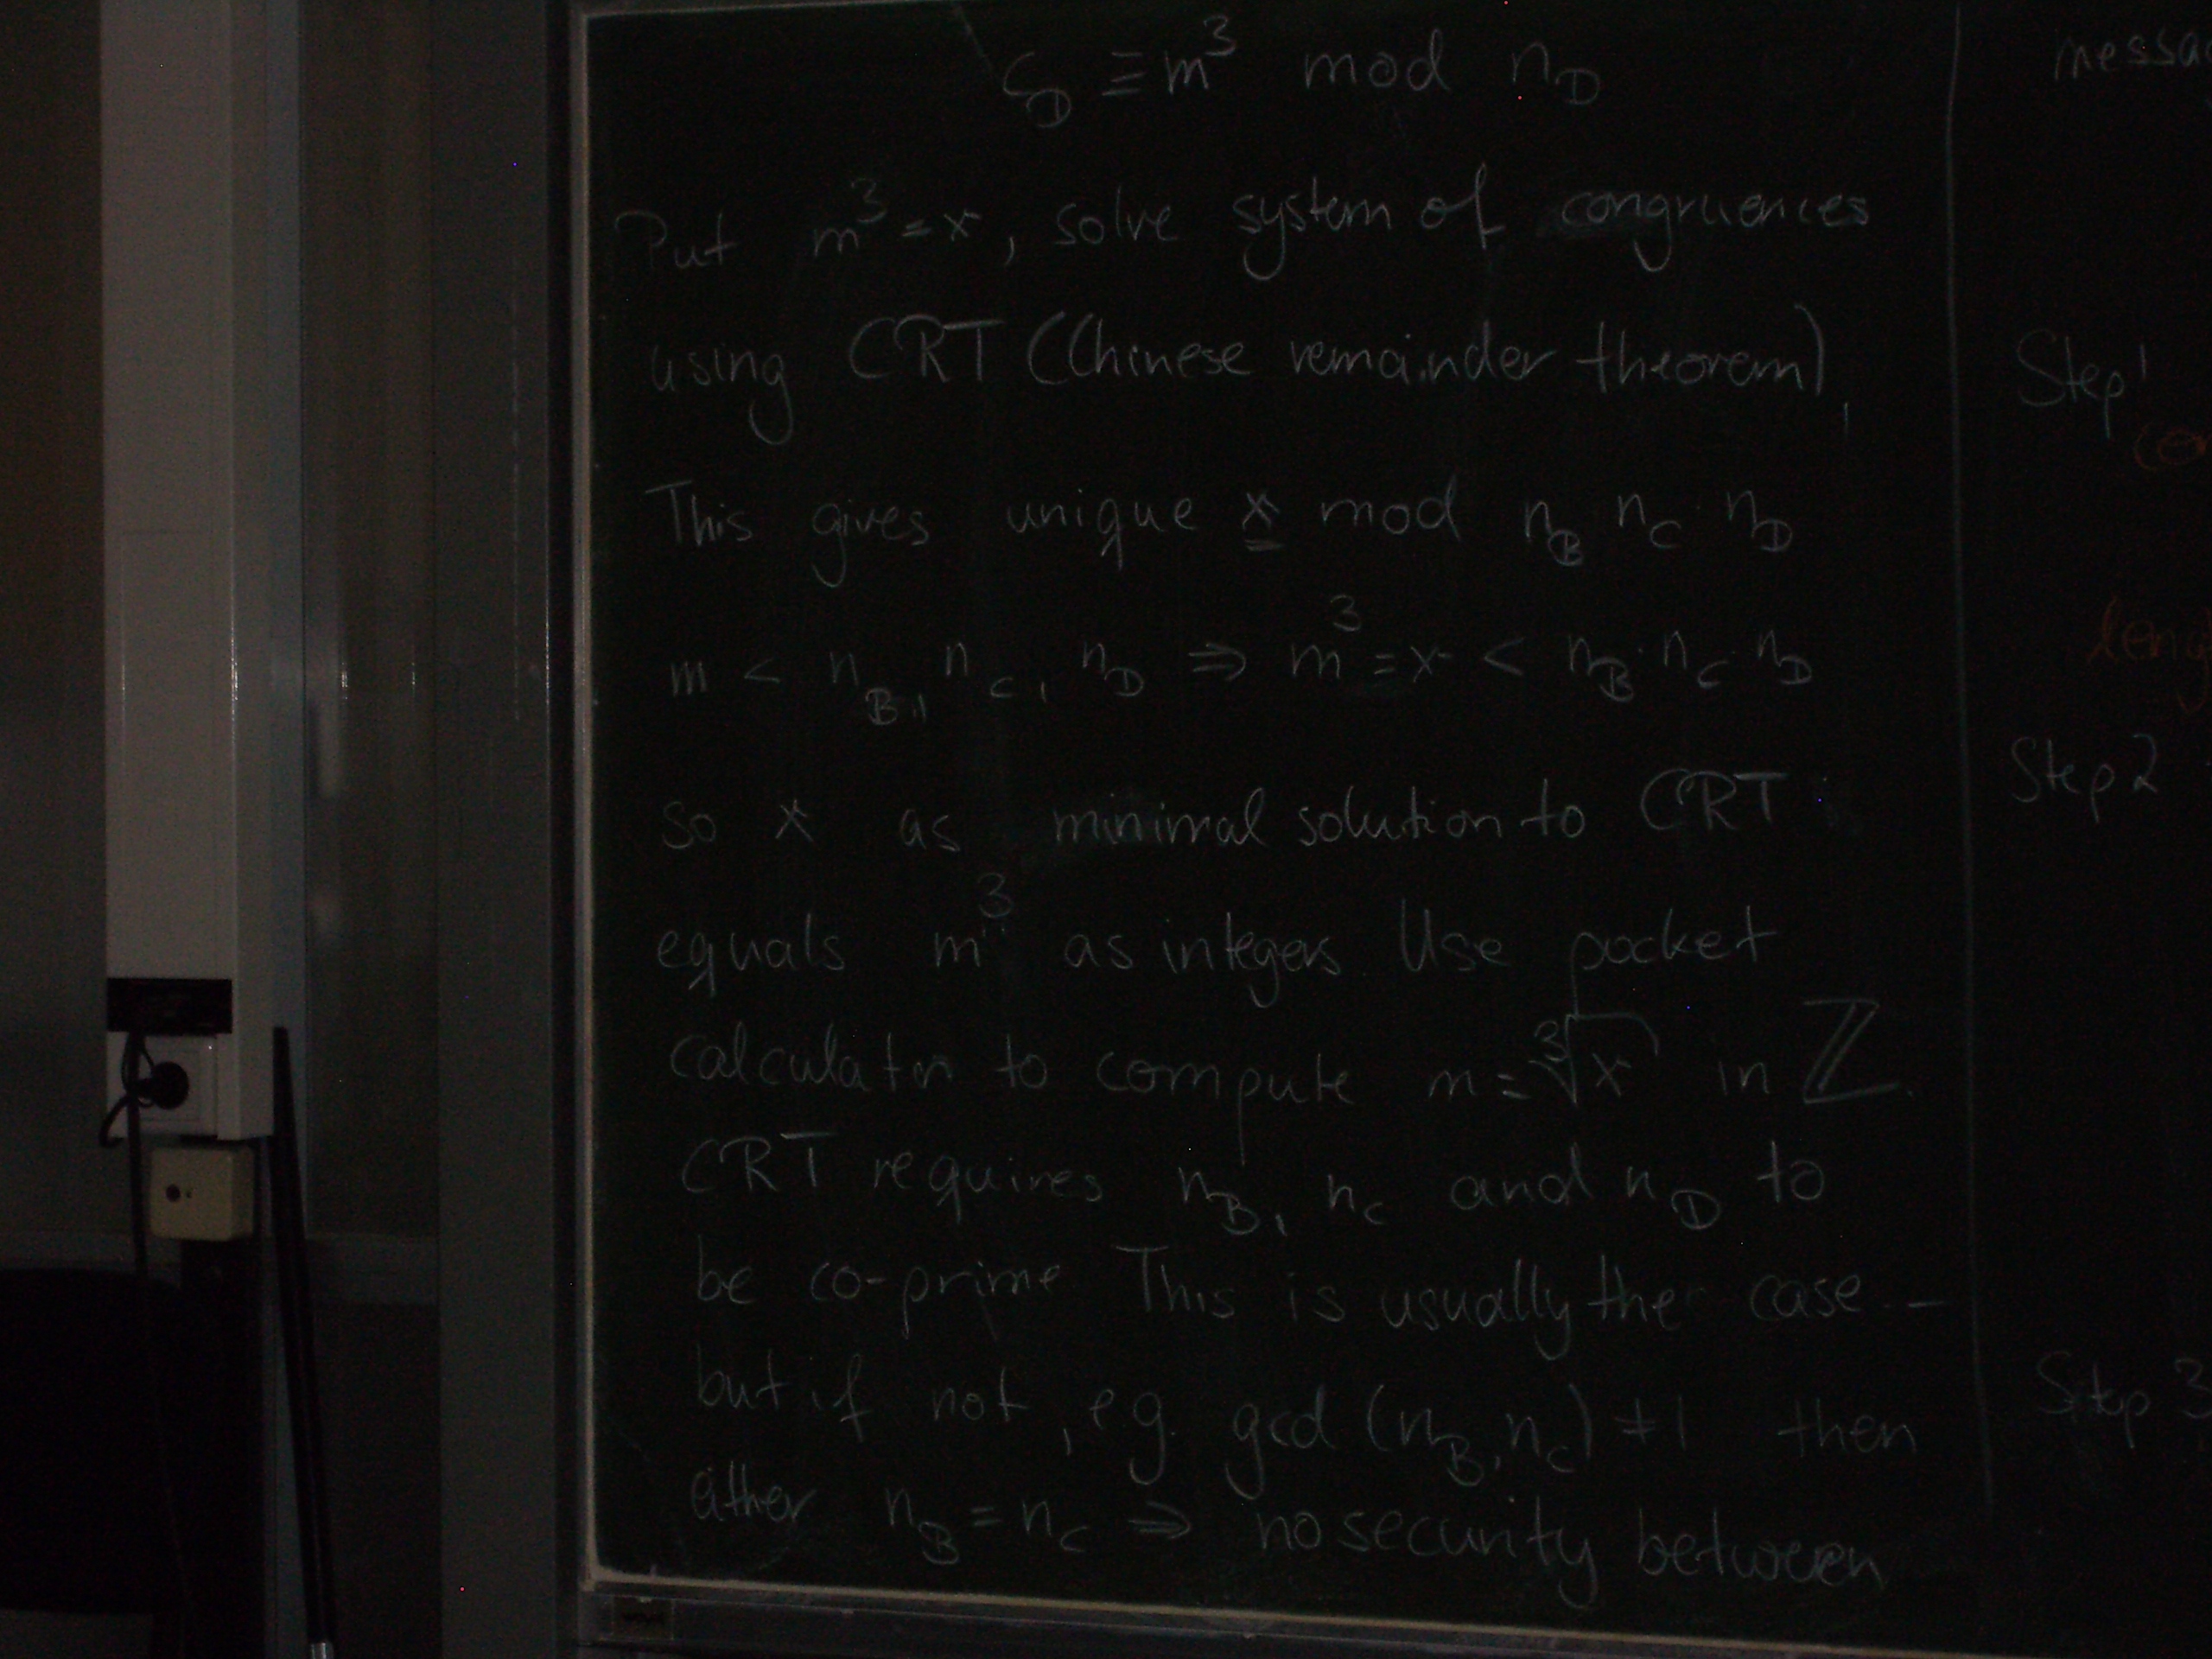 C_D ≡ m³ mod n_D
Put m³ = x, solve system of congruences
using CRT (Chinese remainder theorem),
This gives unique x mod n_B n_C · n_D
m < n_B, n_C, n_D ⇒ m³ = x < n_B · n_C · n_D
so x as minimal solution to CRT
equals m³ as integers. Use pocket
calculator to compute m = ³√x in ℤ.
CRT requires n_B, n_C and n_D to
be co-prime This is usually the case –
but if not, e.g. gcd (n_B, n_C) ≠ 1 then
either n_B = n_C ⇒ no security between
messa
Step 1
co
leng
Step 2
Step 3